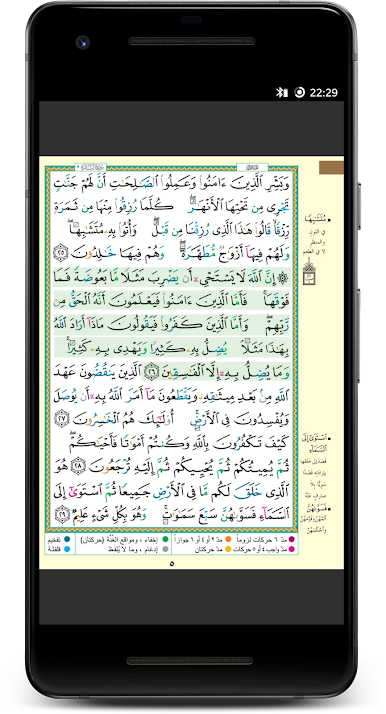 22:29
وَبَشِّرِ الَّذِينَ ءَامَنُوا وَعَمِلُوا الصَّـٰلِحَـٰتِ أَنَّ لَهُمْ جَنَّـٰتٍ
تَجْرِى مِن تَحْتِهَا الْأَنْهَـٰرُ ۖ كُلَّمَا رُزِقُوا مِنْهَا مِن ثَمَرَةٍ
رِّزْقًا ۙ قَالُوا هَـٰذَا الَّذِى رُزِقْنَا مِن قَبْلُ ۖ وَأُتُوا بِهِۦ مُتَشَـٰبِهًا ۖ
وَلَهُمْ فِيهَآ أَزْوَٰجٌ مُّطَهَّرَةٌ ۖ وَهُمْ فِيهَا خَـٰلِدُونَ ٢٥
۞ إِنَّ اللَّهَ لَا يَسْتَحْىِۦٓ أَن يَضْرِبَ مَثَلًا مَّا بَعُوضَةً فَمَا
فَوْقَهَا ۚ فَأَمَّا الَّذِينَ ءَامَنُوا فَيَعْلَمُونَ أَنَّهُ الْحَقُّ مِن
رَّبِّهِمْ ۖ وَأَمَّا الَّذِينَ كَفَرُوا فَيَقُولُونَ مَاذَآ أَرَادَ اللَّهُ
بِهَـٰذَا مَثَلًا ۘ يُضِلُّ بِهِۦ كَثِيرًا وَيَهْدِى بِهِۦ كَثِيرًا ۚ
وَمَا يُضِلُّ بِهِۦٓ إِلَّا الْفَـٰسِقِينَ ٢٦ الَّذِينَ يَنقُضُونَ عَهْدَ
اللَّهِ مِن بَعْدِ مِيثَـٰقِهِۦ وَيَقْطَعُونَ مَآ أَمَرَ اللَّهُ بِهِۦٓ أَن يُوصَلَ
وَيُفْسِدُونَ فِى الْأَرْضِ ۚ أُولَـٰٓئِكَ هُمُ الْخَـٰسِرُونَ ٢٧
كَيْفَ تَكْفُرُونَ بِاللَّهِ وَكُنتُمْ أَمْوَٰتًا فَأَحْيَـٰكُمْ ۖ
ثُمَّ يُمِيتُكُمْ ثُمَّ يُحْيِيكُمْ ثُمَّ إِلَيْهِ تُرْجَعُونَ ٢٨ هُوَ
الَّذِى خَلَقَ لَكُم مَّا فِى الْأَرْضِ جَمِيعًا ثُمَّ اسْتَوَىٰٓ إِلَى
السَّمَآءِ فَسَوَّىٰهُنَّ سَبْعَ سَمَـٰوَٰتٍ ۚ وَهُوَ بِكُلِّ شَىْءٍ عَلِيمٌ ٢٩
مُتَشَـٰبِهًا
في اللون
والمنظر
لا في الطعم
اسْتَوَىٰ إِلَى
السَّمَآءِ
فَسَوَّىٰهُنَّ
مدّ ٦ حركات لزوماً مدّ ٢ أو ٤ أو ٦ جوازاً إخفاء، ومواقع الغُنَّة (حركتان) تفخيم
مدّ واجب ٤ أو ٥ حركات مدّ حركتان إدغام، وما لا يُلفَظ قلقلة
٥